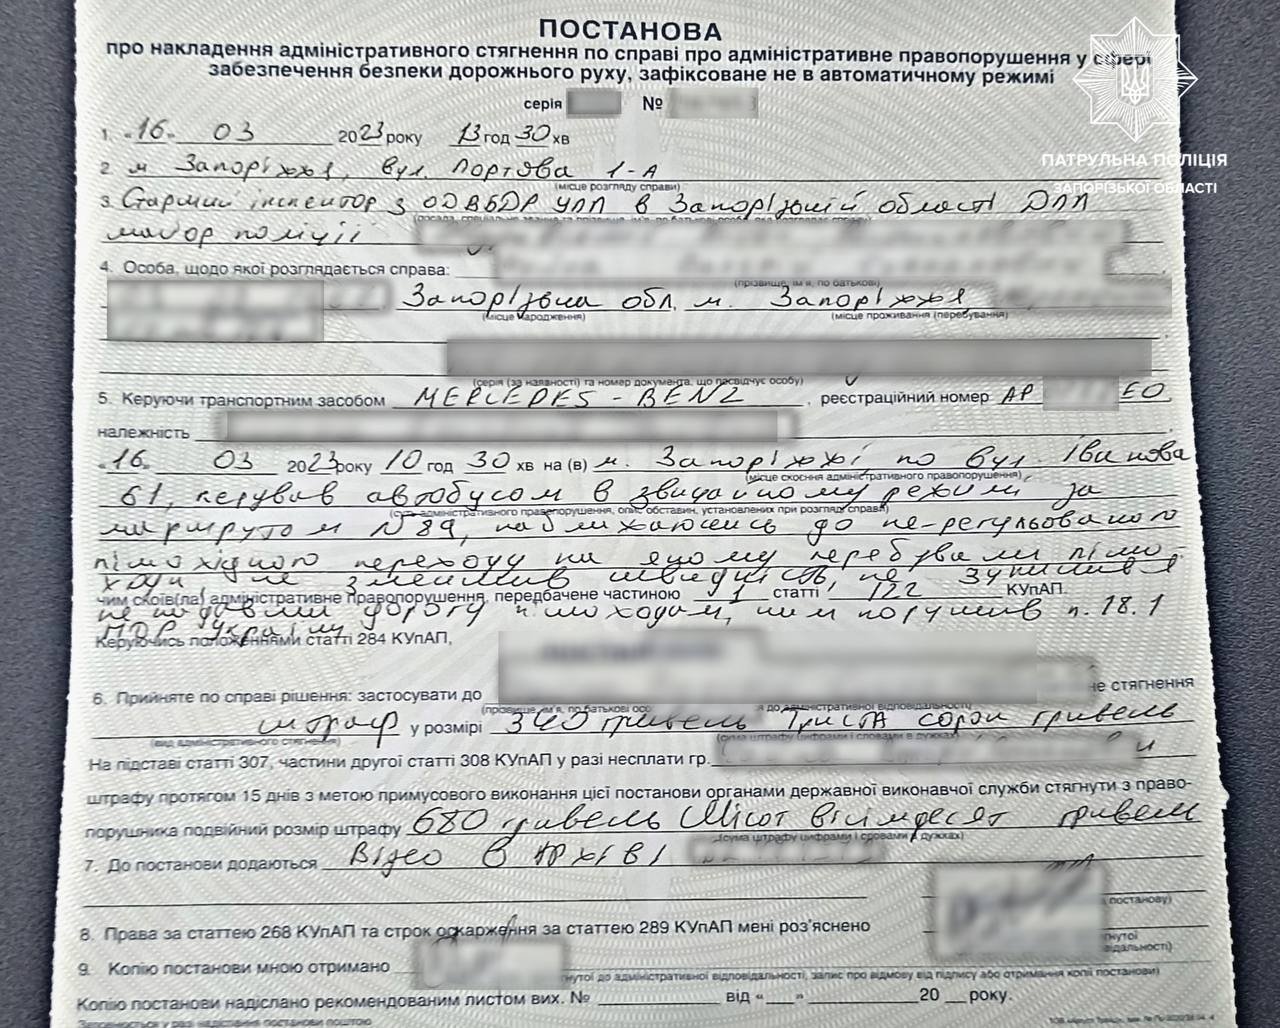 ПОСТАНОВА
про накладення адміністративного стягнення по справі про адміністративне правопорушення у сфері
забезпечення безпеки дорожнього руху, зафіксоване не в автоматичному режимі
серія №
ПАТРУЛЬНА ПОЛІЦІЯ
ЗАПОРІЗЬКОЇ ОБЛАСТІ
1. «16» 03 2023 року 13 год 30 хв
2. м Запоріжжя, вул. Портова 1-А
(місце розгляду справи)
3. Старший інспектор з ОДАБДР УПП в Запорізькій області ДПП
майор поліції
4. Особа, щодо якої розглядається справа:
(прізвище, ім'я, по батькові)
Запорізька обл. м. Запоріжжя
(місце народження) (місце проживання (перебування)
(серія (за наявності) та номер документа, що посвідчує особу)
5. Керуючи транспортним засобом MERCEDES-BENZ, реєстраційний номер АР ЕО
належність
«16» 03 2023 року 10 год 30 хв на (в) м. Запоріжжі по вул. Іванова
(місце скоєння адміністративного правопорушення),
61, керував автобусом в звичайному режимі за
(суть адміністративного правопорушення, опис обставин, установлених при розгляді справи)
маршрутом №89, наближаючись до не-регульованого
пішохідного переходу на якому перебували пішо-
ходи, не зменшив швидкість, не зупинився
чим скоїв(ла) адміністративне правопорушення, передбачене частиною 1 статті 122 КУпАП.
не надавши дорогу пішоходам, чим порушив п. 18.1
ПДР України
Керуючись положеннями статті 284 КУпАП,
6. Прийняте по справі рішення: застосувати до не стягнення
(прізвище, ім'я, по батькові осо я до адміністративної відповідальності)
штраф у розмірі 340 гривень Триста сорок гривень
(вид адміністративного стягнення) (сума штрафу цифрами і словами в дужках)
На підставі статті 307, частини другої статті 308 КУпАП у разі несплати гр.
штрафу протягом 15 днів з метою примусового виконання цієї постанови органами державної виконавчої служби стягнути з право-
порушника подвійний розмір штрафу 680 гривень Шісот вісімдесят гривень
(сума штрафу цифрами і словами в дужках)
7. До постанови додаються Відео в архіві
постанову)
8. Права за статтею 268 КУпАП та строк оскарження за статтею 289 КУпАП мені роз'яснено
гнутої
відальності)
9. Копію постанови мною отримано
гнутої до адміністративної відповідальності, запис про відмову від підпису або отримання копії постанови)
Копію постанови надіслано рекомендованим листом вих. № від « » 20 року.
Заповнюється у разі надіслання постанови поштою